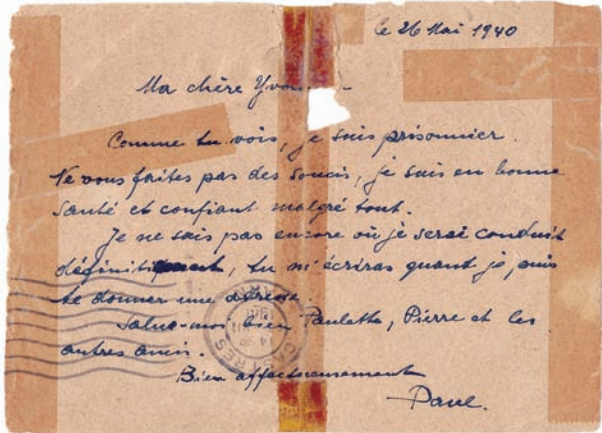 le 26 Mai 1940
Ma chère
Comme tu vois, je suis prisonnier.
Ne vous faites pas des soucis, je suis en bonne
santé et confiant malgré tout.
Je ne sais pas encore où je serai conduit
, tu m'écriras quant je puis
te donner une adresse.
Salue-moi bien Paulette, Pierre et les
autres amis.
Bien affectueusement
Paul.
CASTRES
TARN